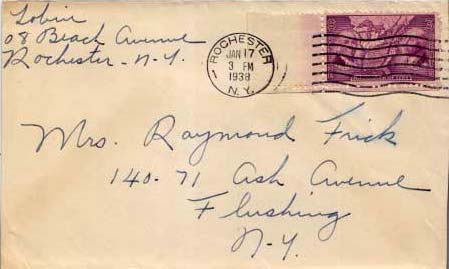 Lobin
08 Beach Avenue
Rochester - N.Y.
ROCHESTER
JAN 17
3 PM
1938
N.Y.
Mrs. Raymond Frick
140-71 Ash Avenue
Flushing
N-Y.